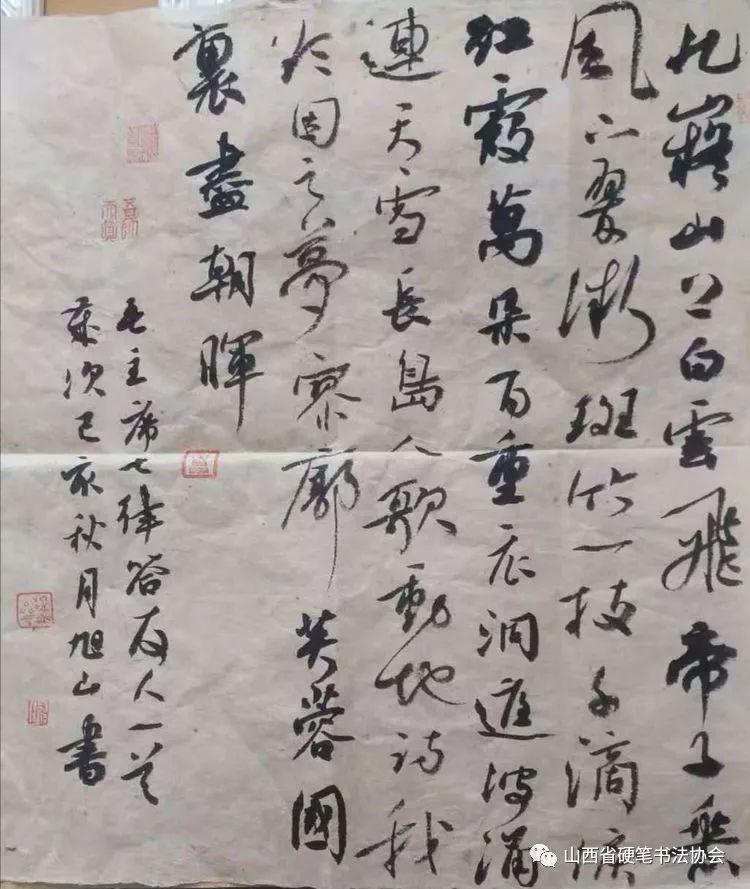 九嶷山上白雲飛帝子乘
風下翠微斑竹一枝千滴淚
紅霞萬朵百重衣洞庭波涌
連天雪長島人歌動地詩我
欲因之夢寥廓芙蓉國
裏盡朝暉
毛主席七律答友人一首
歲次己亥秋月旭山書
山西省硬笔书法协会